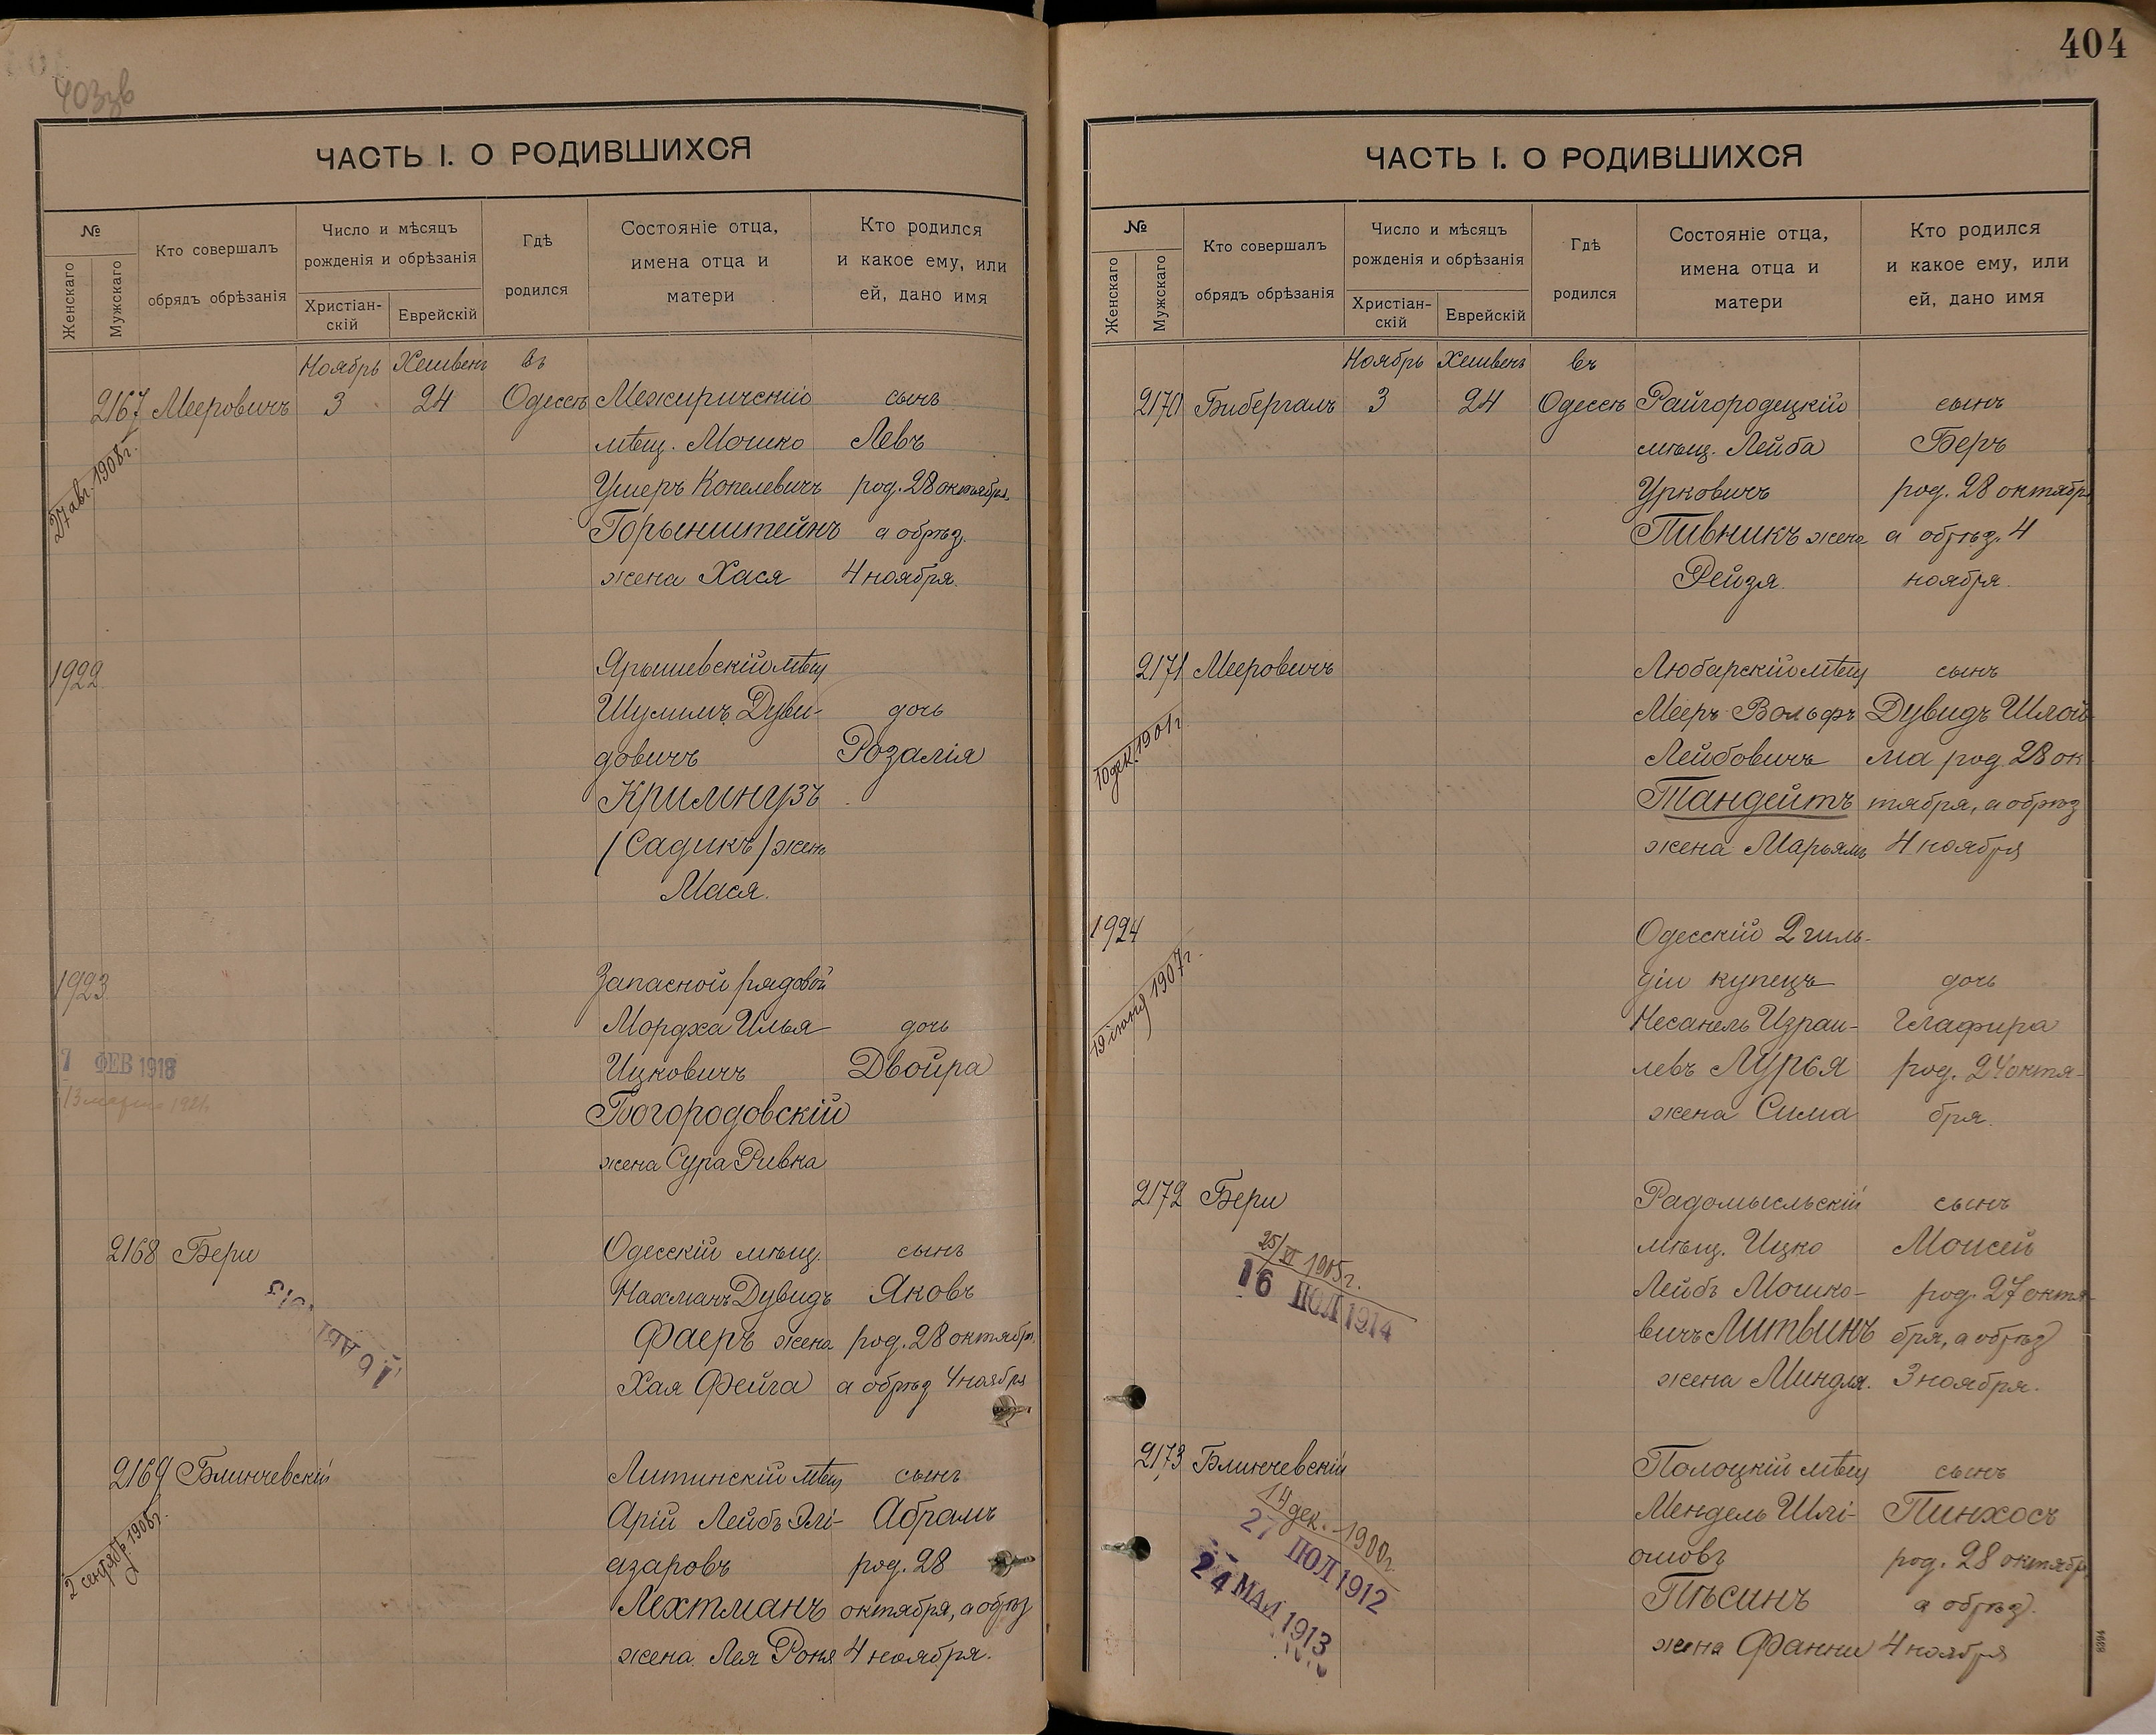 403зв
ЧАСТЬ I. О РОДИВШИХСЯ
№
Женскаго
Мужскаго
Кто совершалъ
обрядъ обрѣзанія
Число и мѣсяцъ
рожденія и обрѣзанія
Христіан-
скій
Еврейскій
Гдѣ
родился
Состояніе отца,
имена отца и
матери
Кто родился
и какое ему, или
ей, дано имя
Ноябрь Хешвенъ въ
2167 Мееровичъ 3 24 Одессѣ Межиричскій сынъ
27 авг. 1908 г.
мѣщ. Мошко Левъ
Ушеръ Копелевичъ род. 28 октября
Горынштейнъ а обрѣз.
жена Хася 4 ноября.
1922 Ярышевскій мѣщ
Шулимъ Дуви- дочь
довичъ Розалія
Кримнузъ
/Садикъ/ жен
Мася.
1923 Запасной рядовой
Мордха Илья дочь
Ицковичъ Двойра
7 ФЕВ 1918
13 марта 1921.
Богородовскій
жена Сура Ривка
2168 Бери Одесскій мѣщ. сынъ
Нахманъ Дувидъ Яковъ
Фаеръ жена род. 28 октябр.
16
Хая Фейга а обрѣз 4 ноября
2169 Блинчевскій Литинскій мѣщ сынъ
2 сентябр. 1908 г.
Арій Лейбъ Элі- Абрамъ
азаровъ род. 28
Лехтманъ октября, а обрѣз
жена Лея Роня 4 ноября.
404
ЧАСТЬ I. О РОДИВШИХСЯ
№
Женскаго
Мужскаго
Кто совершалъ
обрядъ обрѣзанія
Число и мѣсяцъ
рожденія и обрѣзанія
Христіан-
скій
Еврейскій
Гдѣ
родился
Состояніе отца,
имена отца и
матери
Кто родился
и какое ему, или
ей, дано имя
Ноябрь Хешвенъ въ
2170 Бибергалъ 3 24 Одессѣ Райгородецкій сынъ
мѣщ. Лейба Беръ
Урковичъ род. 28 октябр
Пивникъ жена а обрѣз. 4
Фейзя. ноября.
2171 Мееровичъ Любарскій мѣщ сынъ
10 дек. 1901 г
Мееръ Вольфъ Дувидъ Шлой
Лейбовичъ ма род. 28 ок
Тандейтъ тября, а обрѣз
жена Марьямъ 4 ноября
1924 Одесскій 2 гиль-
19 іюня 1907 г.
діи купецъ дочь
Несанель Израи- Глафира
левъ Лурья род. 24 октя-
жена Сима бря.
2172 Бери Радомысльскій сынъ
25/VI 1905 г.
16 ІЮЛ 1914
мѣщ. Ицко Моисей
Лейбъ Мошко- род. 27 октя-
вичъ Литвинъ бря, а обрѣз
жена Миндля. 3 ноября.
2173 Блинчевскій Полоцкій мѣщ сынъ
14 дек. 1900 г.
27 ІЮЛ 1912
24 МАЙ 1913
Мендель Шлі- Пинхосъ
омовъ род. 28 октябр
Пѣсинъ а обрѣз.
жена Фанни 4 ноября